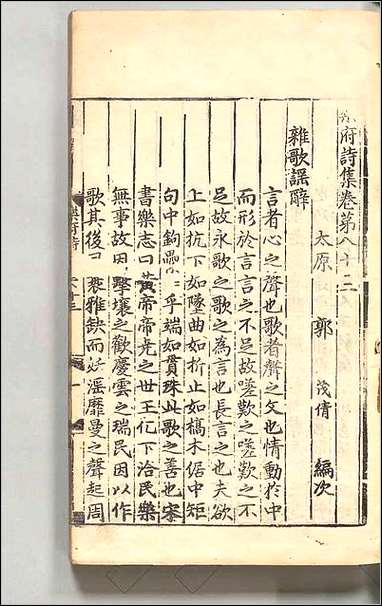 府詩集卷第八十三
太原 郭 茂倩 編次
雜歌謡辭
言者心之聲也歌者聲之文也情動於中
而形於言言之不足故嗟歎之嗟歎之不
足故永歌之歌之為言也長言之也夫欲
上如抗下如墜曲如折止如槁木倨中矩
句中鉤 乎端如貫珠此歌之善也宋
書樂志曰黃帝帝堯之世王化下洽民樂
無事故因擊壤之歡慶雲之瑞民因以作
歌其後 衰雅缺而 淫靡曼之聲起周
府詩